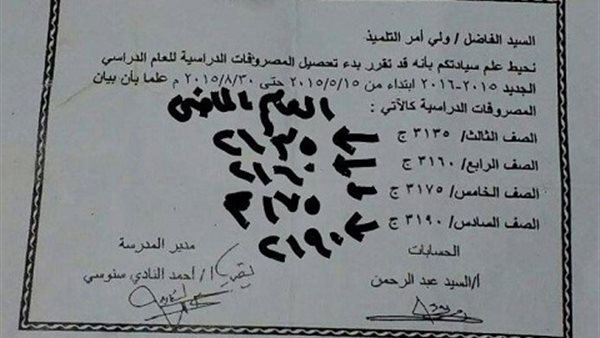 السيد الفاضل / ولي أمر التلميذ
نحيط علم سيادتكم بأنه قد تقرر بدء تحصيل المصروفات الدراسية للعام الدراسي
الجديد ٢٠١٥-٢٠١٦ ابتداء من ٢٠١٥/٥/١٥ حتى ٢٠١٥/٨/٣٠ م علما بأن بيان
المصروفات الدراسية كالآتي :
العام الماضى
الصف الثالث/ ٣١٣٥ ج
الصف الرابع/ ٣١٦٠ ج
الصف الخامس/ ٣١٧٥ ج
الصف السادس/ ٣١٩٠ ج
٢١٩٠
الحسابات
مدير المدرسة
أ/السيد عبد الرحمن
أ/ أحمد النادي سنوسي